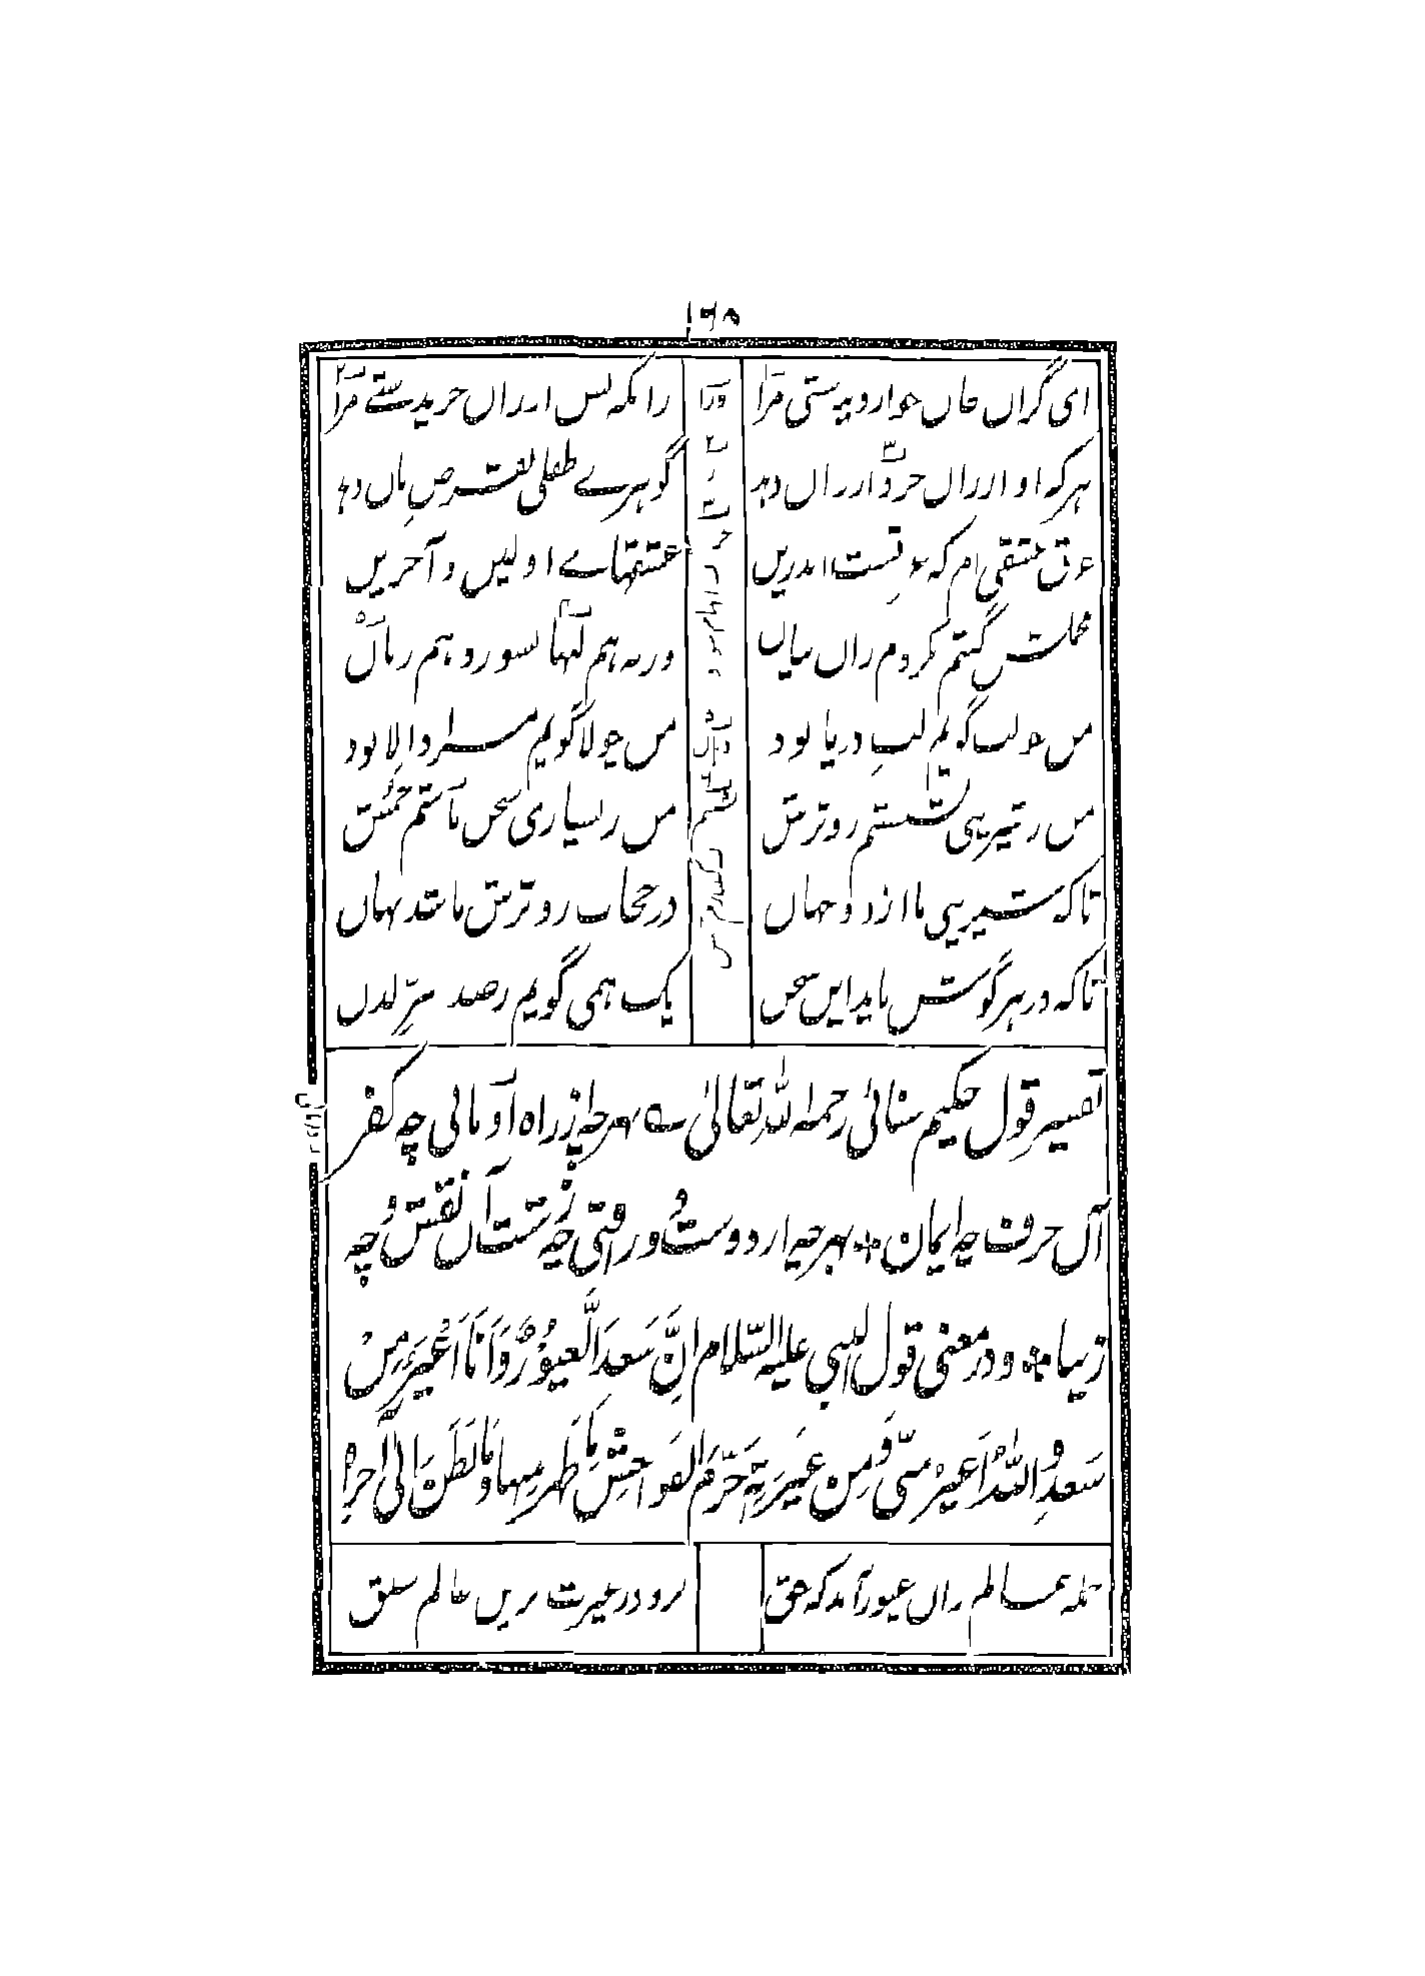 ۱۶۵
ای گراں جاں خوار دیدستی مرا زانکه بس ارزاں خریدستے مرا
هر که او ارزاں خرد ارزاں دهد گوهرے طفلی بقرص ناں دهد
غرق عشقی ام که غرقست اندریں عشقهاے اولیں و آخریں
مجملش گفتم نکردم زاں بیاں ورنه هم لبها سوزد هم زباں
من چو لب گویم لب دریا بود من چو لا گویم مراد الا بود
من ز شیرینی نشستم رو ترش من ز بسیاری سخن باشتم خمش
تا که شیرینی ما از دو جهاں در حجاب رو ترش باشد نهاں
تا که در هر گوش ناید ایں سخن یک همی گویم ز صد سرّ لدن
تفسیر قول حکیم سنائی رحمه الله تعالیٰ ے بهر چه از راه وا مانی چه کفر
آں حرف چه ایمان ٭ بهر چه از دوست دور افتی چه زشت آں نقش و چه
زیبا ٭ و در معنی قول النبی علیه السّلام اِنَّ سَعدَ الَغیُوْرٌ وَاَنَا اَغْیَرُ مِنْ
سَعدٍ وَاللّٰهُ اَغْیَرُ مِنّی وَمِن غَیرَتِهٖ حَرَّمَ الفَوَاحِشَ مَا ظَهَرَ مِنها وَمَا بَطَنَ اِلیٰ آخره
جمله عالم زاں غیور آمد که حق برد در غیرت بریں عالم سبق